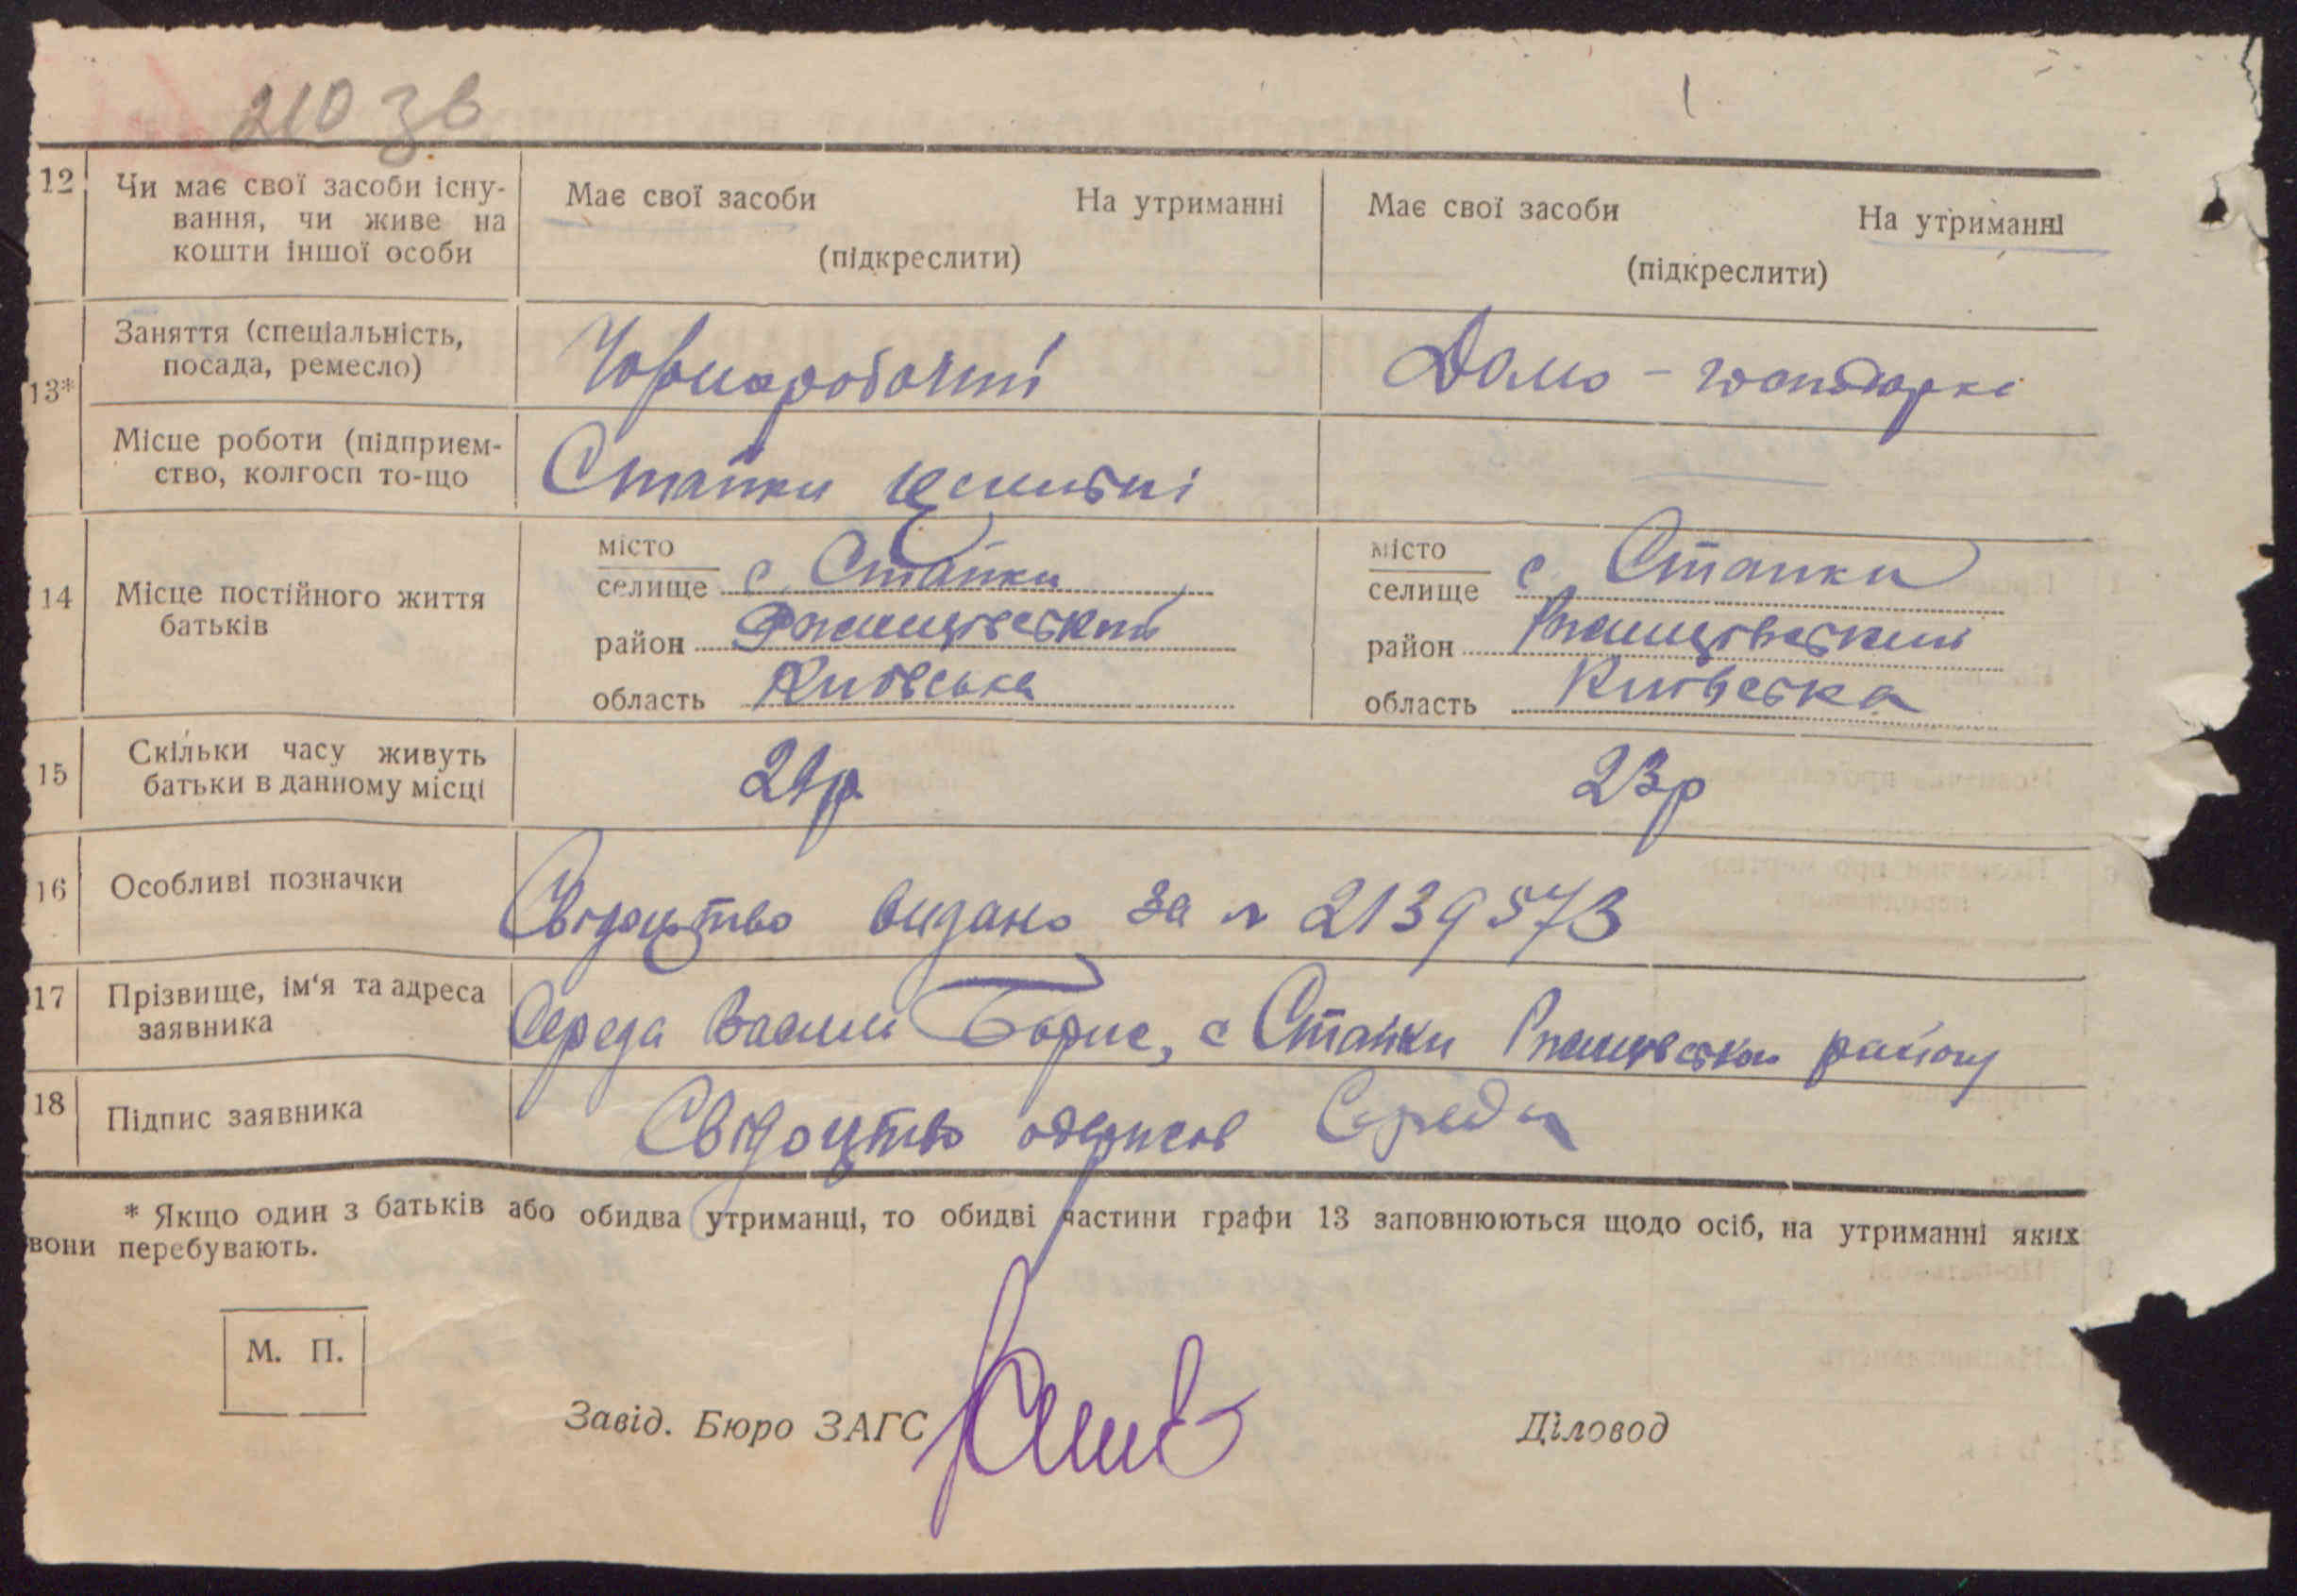 210 зв
12 Чи має свої засоби існу-
вання, чи живе на
кошти іншої особи
Має свої засоби На утриманні
(підкреслити)
Має свої засоби На утриманні
(підкреслити)
13*
Заняття (спеціальність,
посада, ремесло)
Чорнаробочий
Домо-господарка
Місце роботи (підприєм-
ство, колгосп то-що
Стайки
14 Місце постійного життя
батьків
місто
селище с. Стайки
район Ржищівський
область Київська
місто
селище с. Стайки
район Ржищівський
область Київська
15 Скільки часу живуть
батьки в данному місці
23р
16 Особливі позначки
Свідоцтво видано за № 2139573
17 Прізвище, ім‘я та адреса
заявника
Середа Василь Борис, с Стайки Ржищівськ району
18 Підпис заявника
Свідоцтво одержав Середа
* Якщо один з батьків або обидва утриманці, то обидві частини графи 13 заповнюються щодо осіб, на утриманні яких
вони перебувають.
М. П.
Завід. Бюро ЗАГС
Діловод